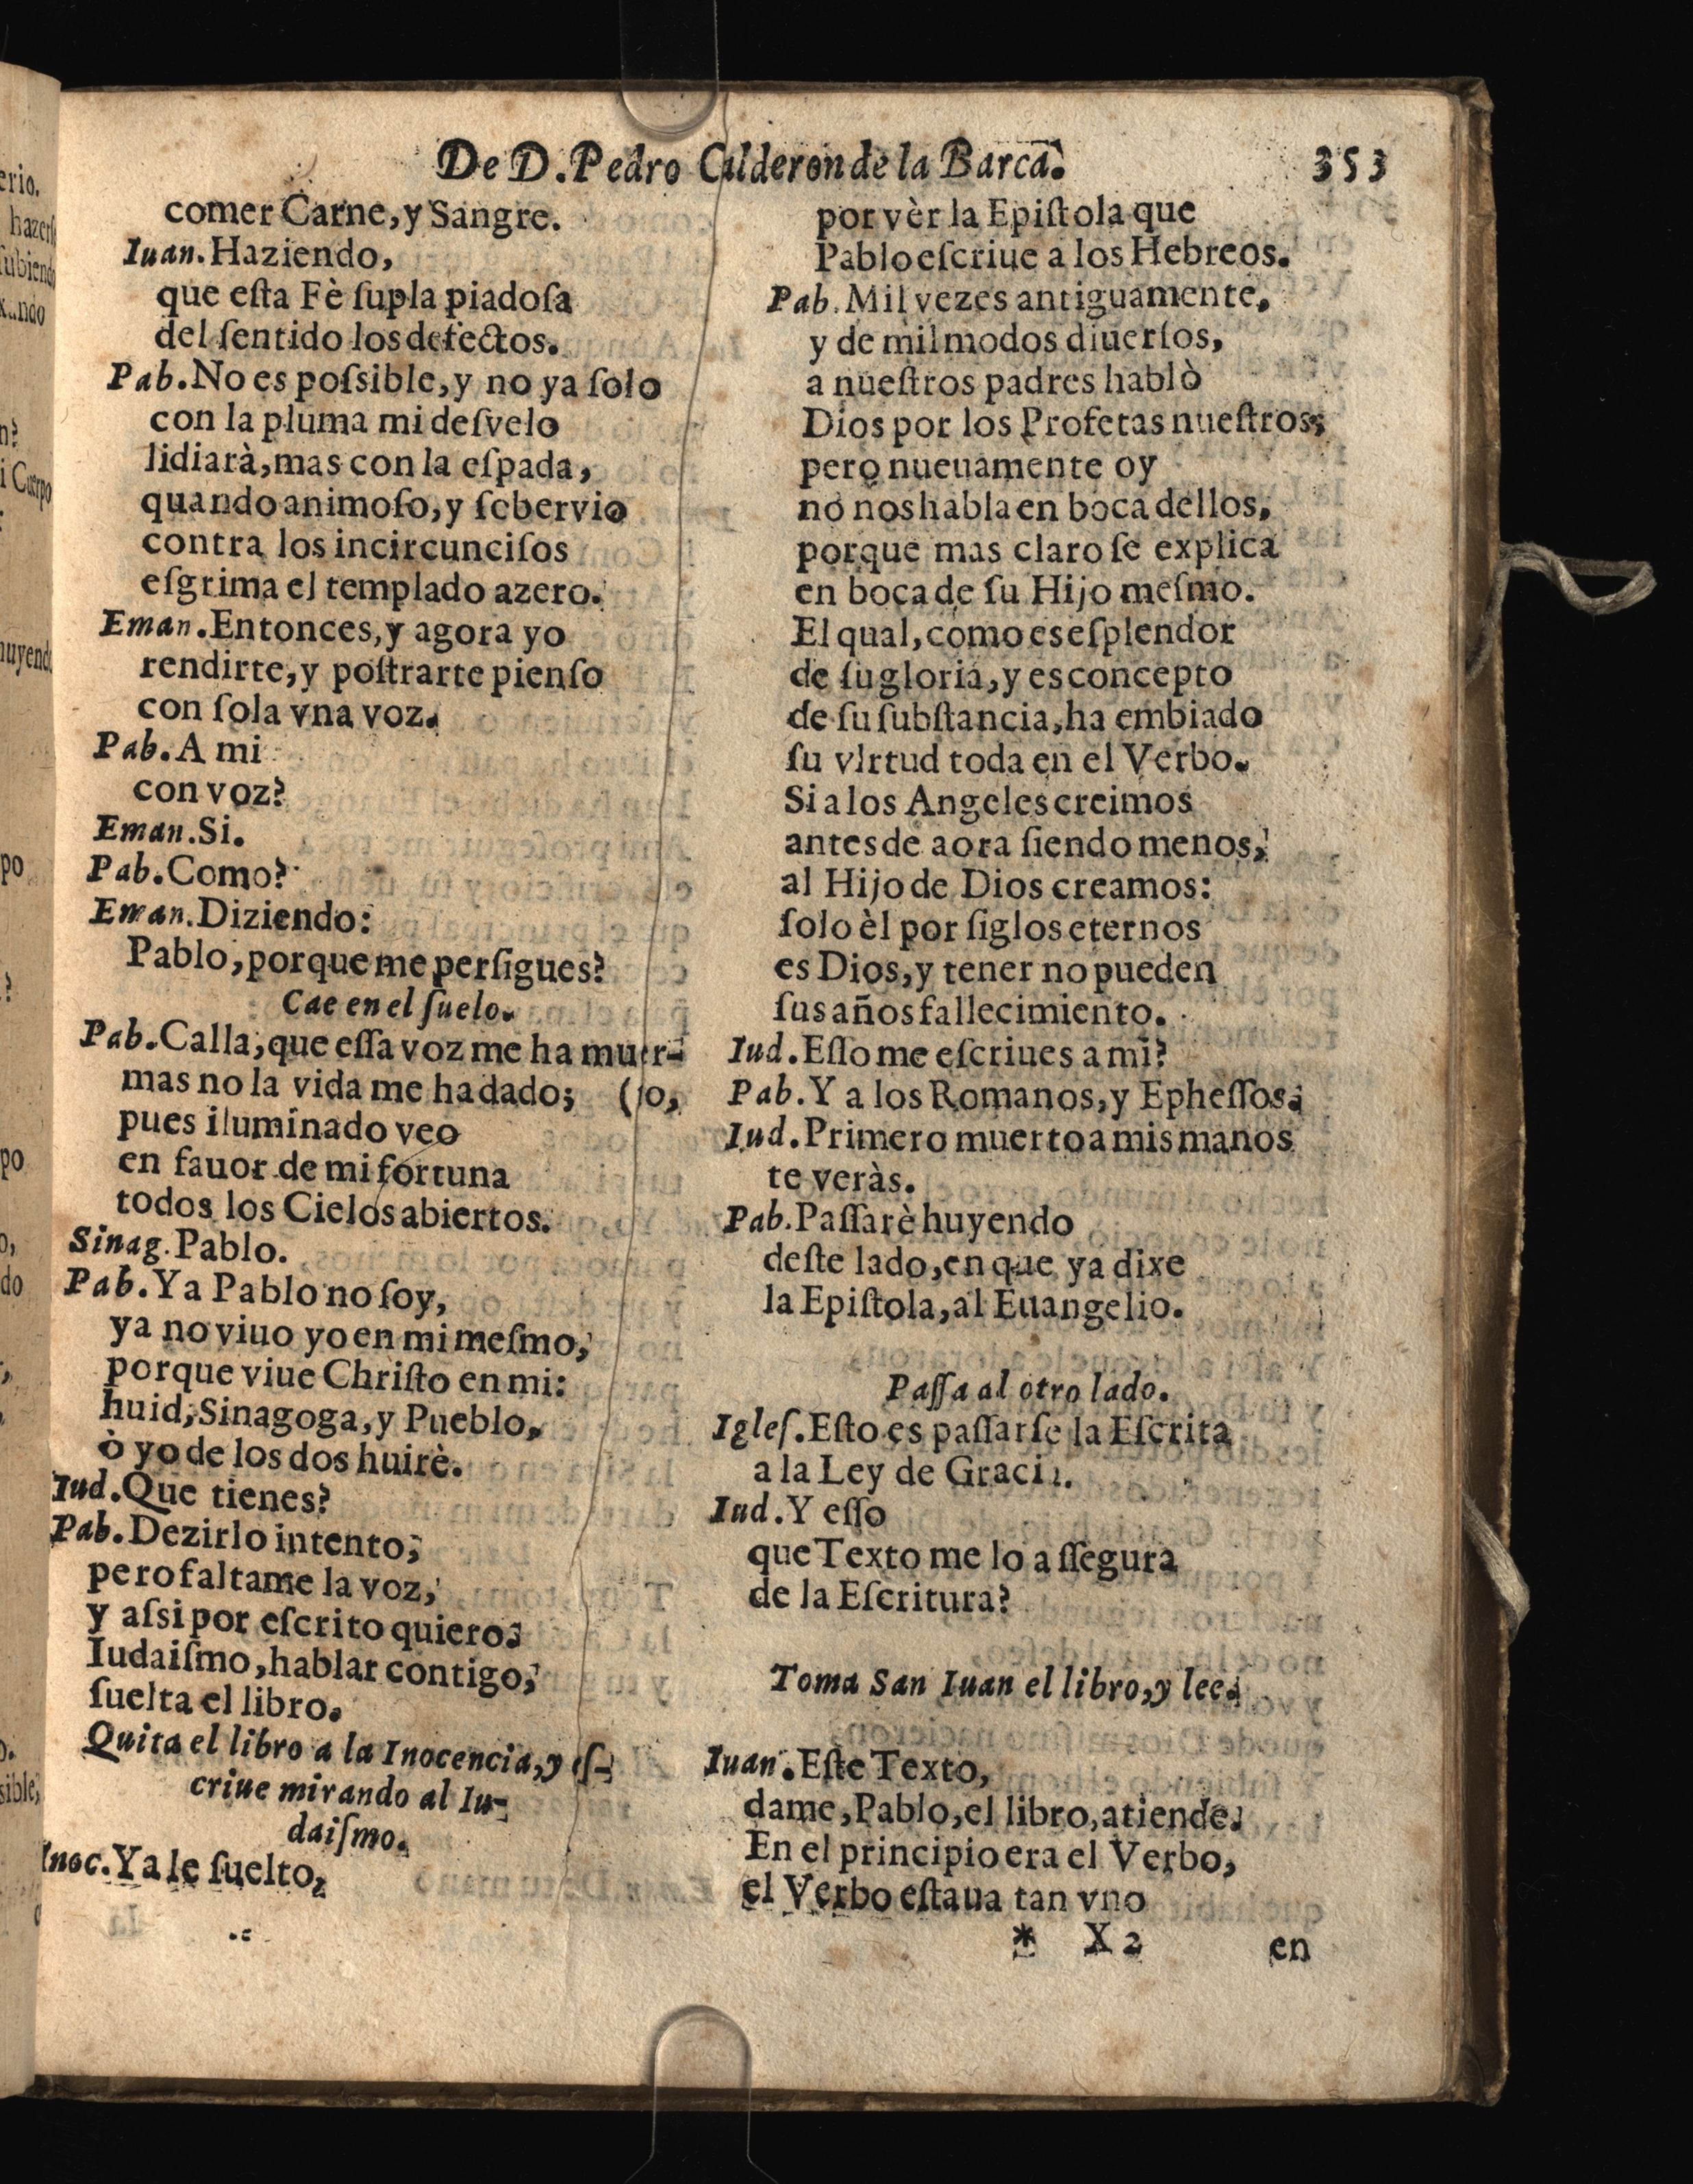 De D. Pedro Calderon de la Barca. 353
comer Carne, y Sangre.
Iuan. Haziendo,
que eſta Fè ſupla piadoſa
del ſentido los defectos.
Pab. No es poſsible, y no ya ſolo
con la pluma mi deſvelo
lidiarà, mas con la eſpada,
quando animoſo, y ſobervio
contra los incircunciſos
eſgrima el templado azero.
Eman. Entonces, y agora yo
rendirte, y poſtrarte pienſo
con ſola vna voz.
Pab. A mi
con voz?
Eman. Si.
Pab. Como?
Eman. Diziendo:
Pablo, porque me perſigues?
Cae en el ſuelo.
Pab. Calla, que eſſa voz me ha muer-
mas no la vida me ha dado; (to,
pues iluminado veo
en fauor de mi fortuna
todos los Cielos abiertos.
Sinag. Pablo.
Pab. Ya Pablo no ſoy,
ya no viuo yo en mi meſmo,
porque viue Chriſto en mi:
huid, Sinagoga, y Pueblo,
ò yo de los dos huirè.
Iud. Que tienes?
Pab. Dezirlo intento;
pero faltame la voz,
y aſsi por eſcrito quiero;
Iudaiſmo, hablar contigo,
ſuelta el libro.
Quita el libro a la Inocencia, y eſ-
criue mirando al Iu-
daiſmo.
Inoc. Ya le ſuelto,
por vèr la Epiſtola que
Pablo eſcriue a los Hebreos.
Pab. Mil vezes antiguamente,
y de mil modos diuerſos,
a nueſtros padres hablò
Dios por los Profetas nueſtros;
pero nueuamente oy
no nos habla en boca dellos,
porque mas claro ſe explica
en boca de ſu Hijo meſmo.
El qual, como es eſplendor
de ſu gloria, y es concepto
de ſu ſubſtancia, ha embiado
ſu virtud toda en el Verbo.
Si a los Angeles creimos
antes de aora ſiendo menos,
al Hijo de Dios creamos:
ſolo èl por ſiglos eternos
es Dios, y tener no pueden
ſus años fallecimiento.
Iud. Eſſo me eſcriues a mi?
Pab. Y a los Romanos, y Epheſſos;
Iud. Primero muerto a mis manos
te veràs.
Pab. Paſſarè huyendo
deſte lado, en que ya dixe
la Epiſtola, al Euangelio.
Paſſa al otro lado.
Igleſ. Eſto es paſſarſe la Eſcrita
a la Ley de Gracia.
Iud. Y eſſo
que Texto me lo aſſegura
de la Eſcritura?
Toma San Iuan el libro, y lee.
Iuan. Eſte Texto,
dame, Pablo, el libro, atiende.
En el principio era el Verbo,
el Verbo eſtaua tan vno
* X2 en